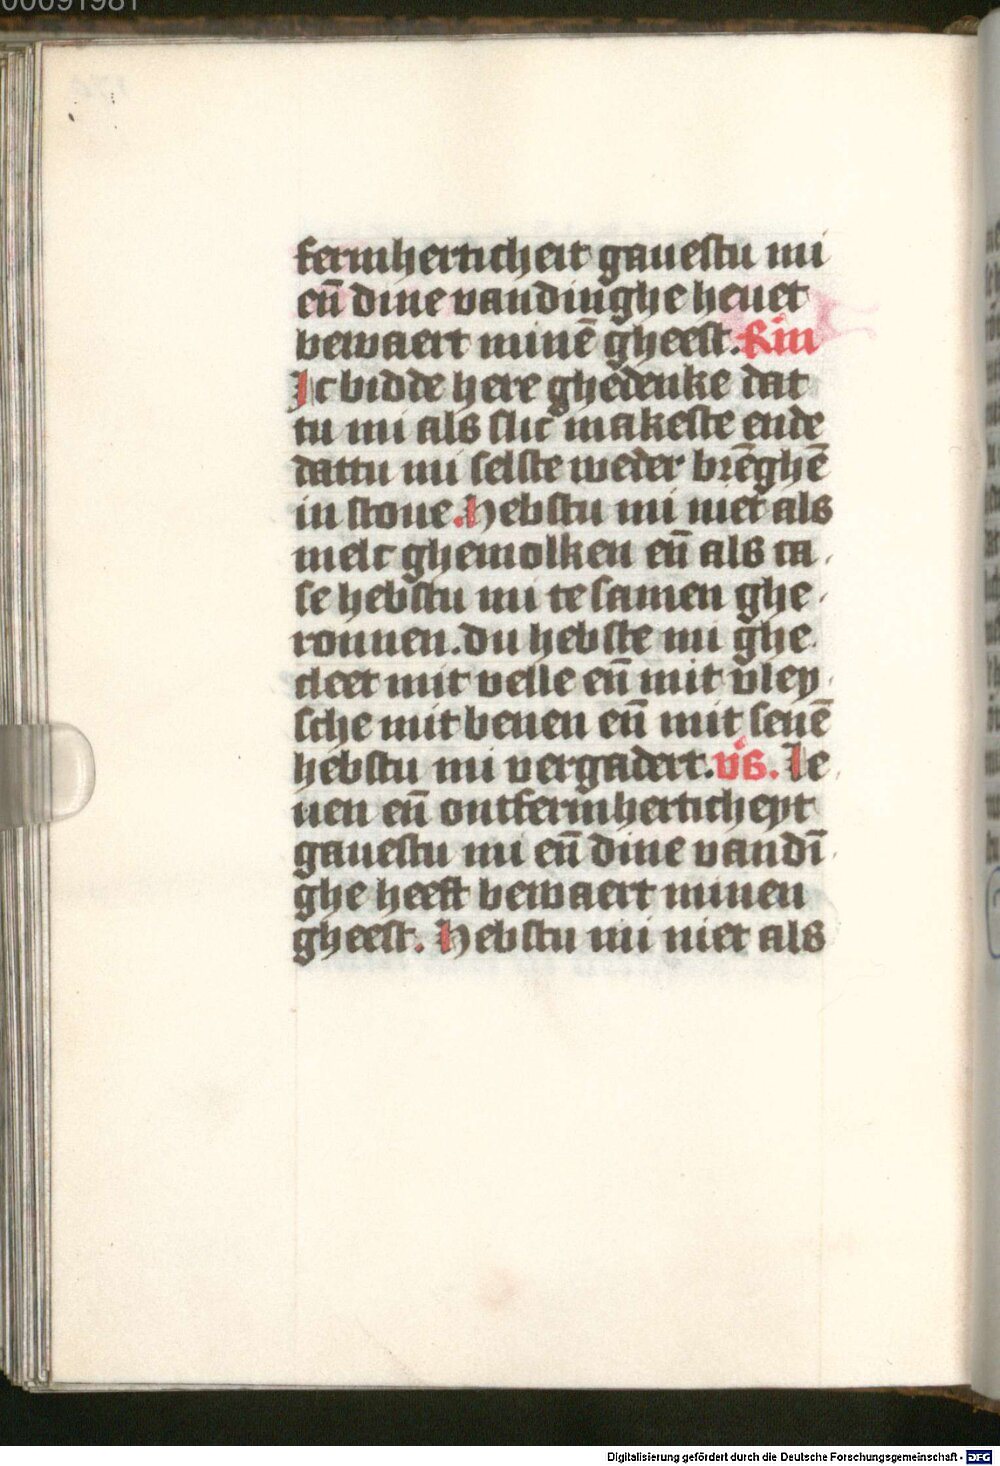 00091981
fermherticheit gauestu mi
en̄ dine vandinghe heuet
bewaert minē gheest. Rm̄
Ic bidde here ghedenke dat
tu mi als slic makeste ende
dattu mi selste weder brēghē
in stoue. Hebstu mi niet als
melc ghemolken en̄ als ca
se hebstu mi te samen ghe
ronnen. Du hebste mi ghe
cleet mit velle en̄ mit vley
sche mit benen en̄ mit senē
hebstu mi vergadert. v̄s. Le
uen en̄ ontfermherticheyt
gauestu mi en̄ dine vandī
ghe heeft bewaert minen
gheest. Hebstu mi niet als
Digitalisierung gefördert durch die Deutsche Forschungsgemeinschaft - DFG